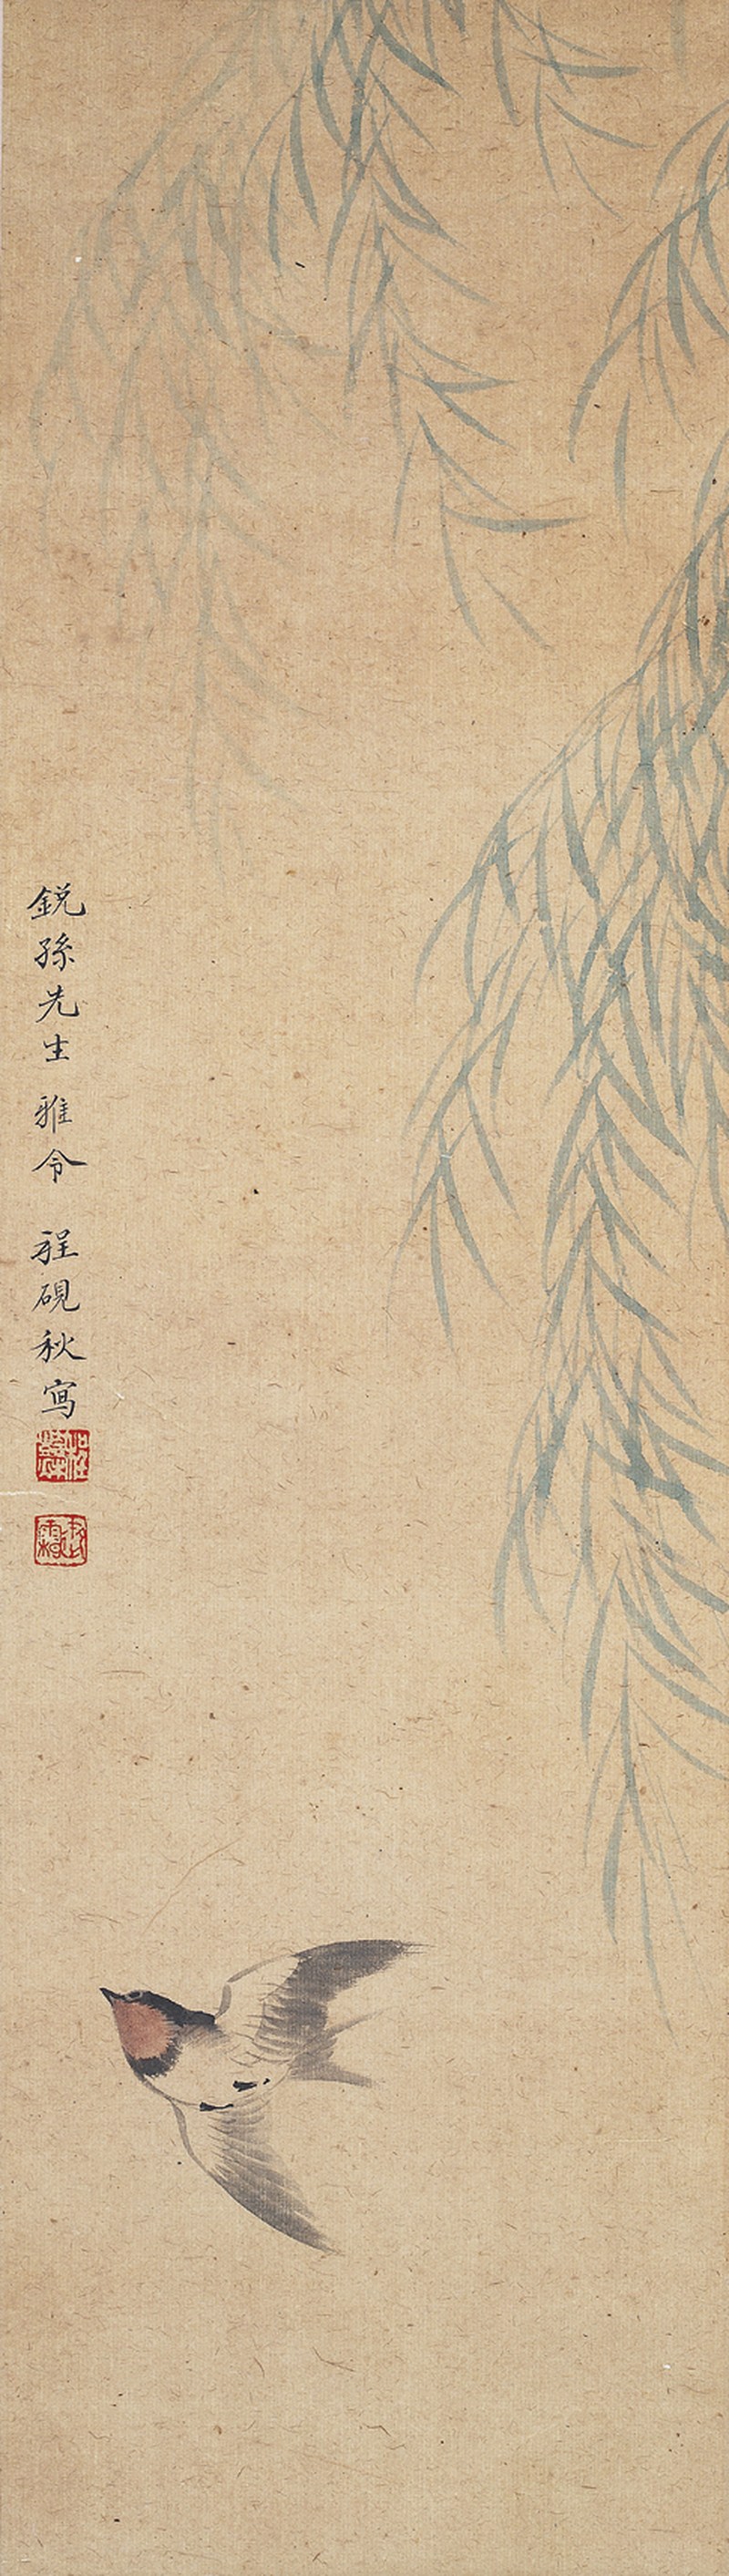 銳孫先生 雅令 程硯秋寫